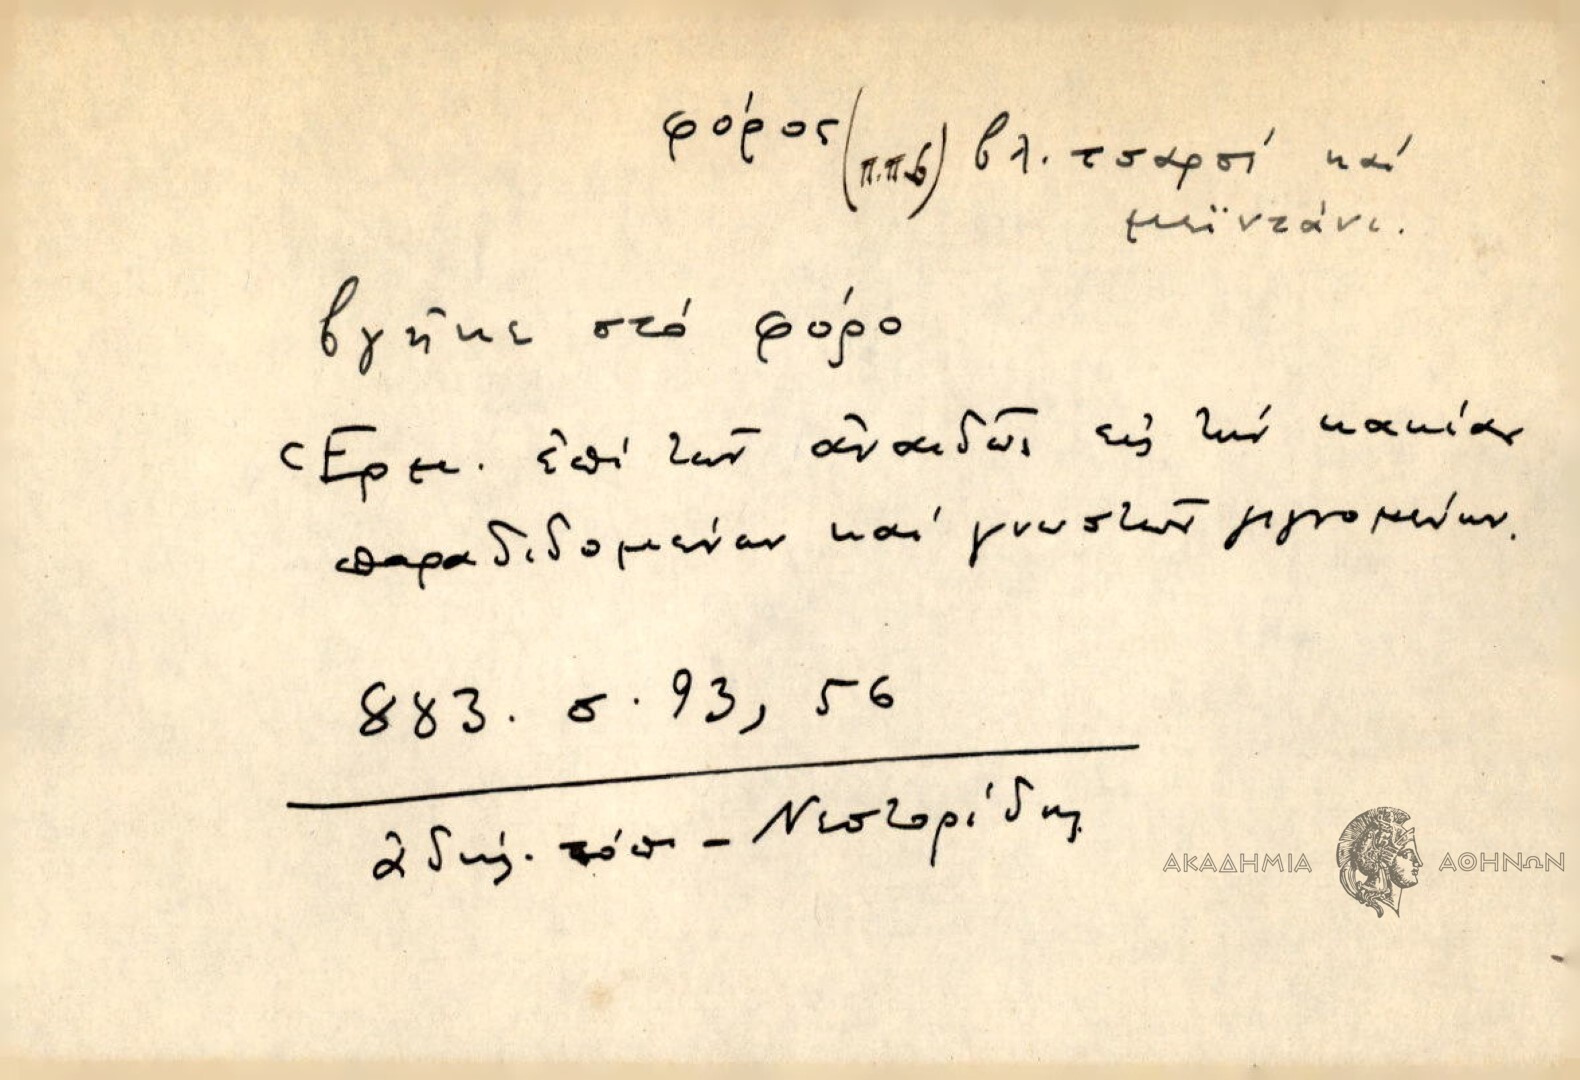 φόρος (π.πβ) βλ. τσαρσί καί
μεϊντάνι.
βγῆκε στό φόρο
Ἑρμ. ἐπί τῶν ἀναιδῶς εἰς τήν κακίαν
παραδιδομένων καί γνωστῶν γιγνομένων.
883. σ. 93, 56
ἀδήλ. τόπ - Νεστορίδης
ΑΚΑΔΗΜΙΑ ΑΘΗΝΩΝ